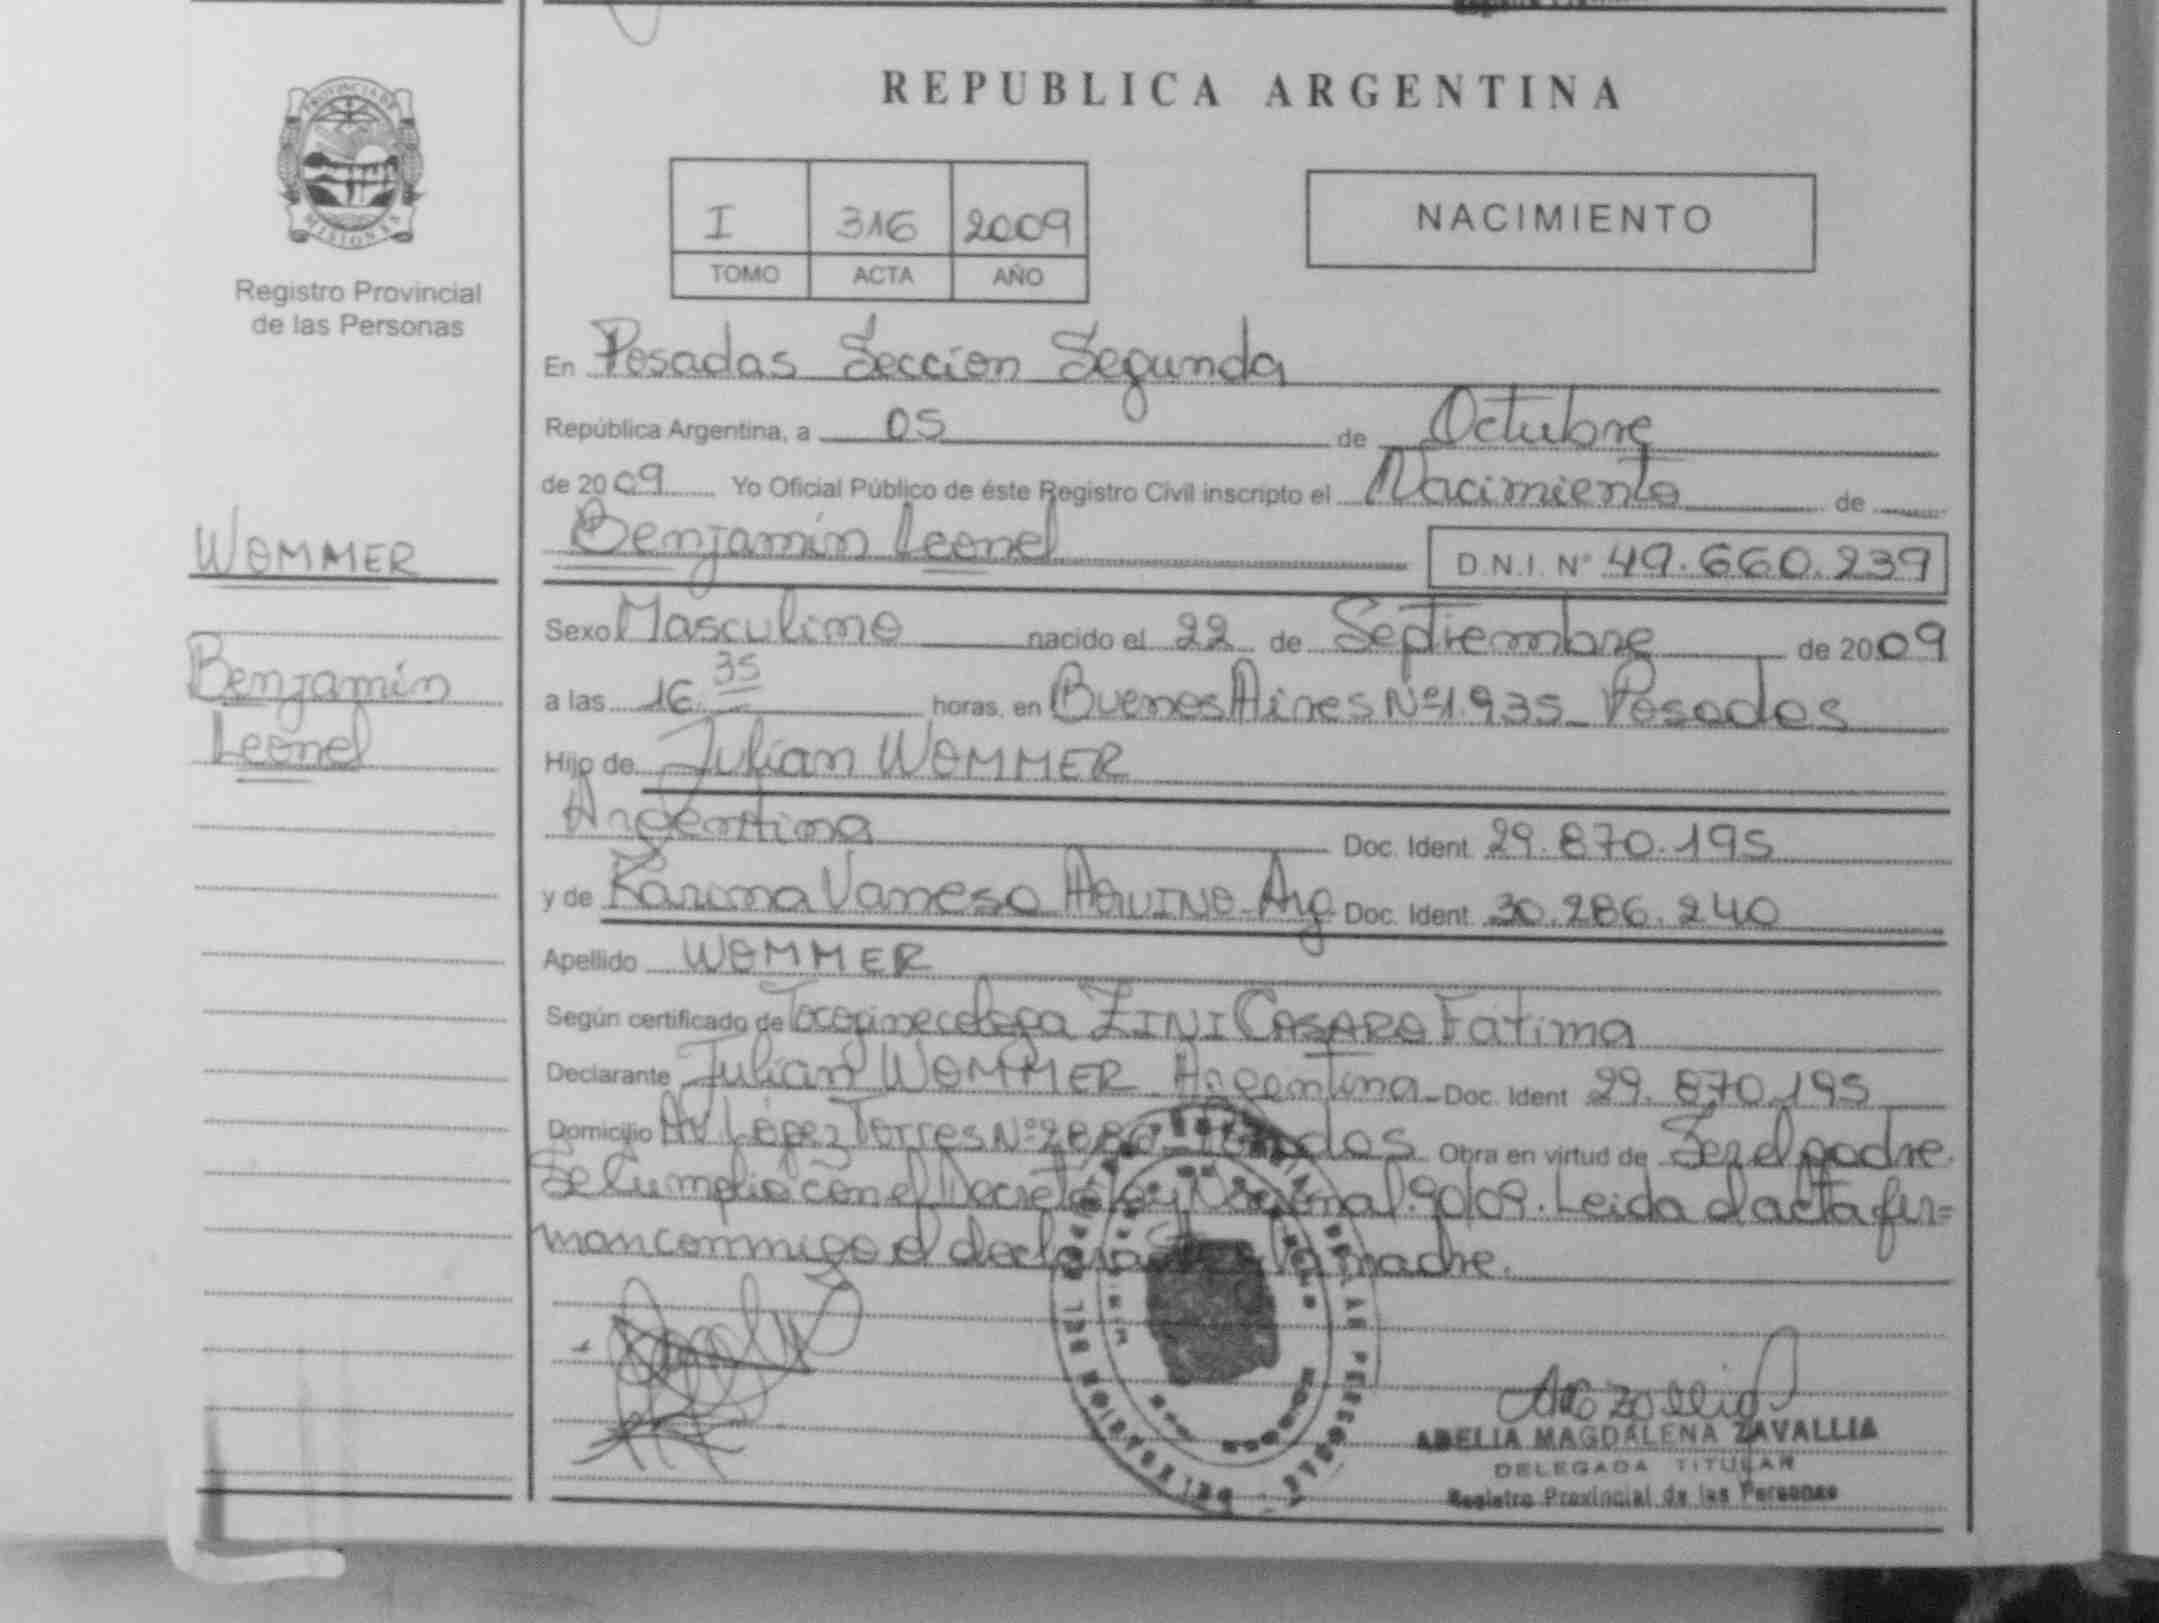 REPUBLICA ARGENTINA
PROVINCIA DE
MISIONES
Registro Provincial
de las Personas
I 316 2009
TOMO ACTA AÑO
NACIMIENTO
En Posadas Sección Segunda
República Argentina, a 05 de Octubre
de 2009 Yo Oficial Público de éste Registro Civil inscripto el Nacimiento de
WOMMER
Benjamín Leonel D.N.I. Nº 49.660.239
Sexo Masculino nacido el 22 de Septiembre de 2009
Benjamín
Leonel
a las 16.35 horas, en Buenos Aires Nº1.935 Posadas
Hijo de Julian WOMMER
Argentina Doc. Ident. 29.870.195
y de Karina Vanesa AQUINO-Arg Doc. Ident. 30.286.240
Apellido WOMMER
Según certificado de Tocoginecologa ZINI CASARO Fatima
Declarante Julian WOMMER Argentina Doc. Ident 29.870.195
Domicilio Av López Torres Nº Posadas Obra en virtud de Ser el padre.
Se Cumplio con el Decreto Ley 90/09. Leida el acta fir=
man conmigo el declarante y la madre.
ADELIA MAGDALENA ZAVALLIA
DELEGADA TITULAR
Registro Provincial de las Personas